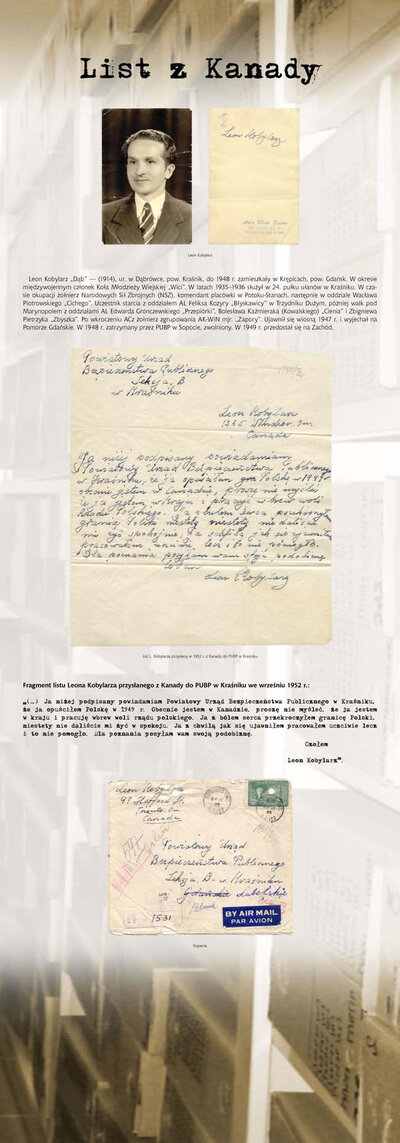 List z Kanady
Leon Kobylarz
Leon Kobylarz
Leon Kobylarz „Dąb” — (1914), ur. w Dąbrówce, pow. Kraśnik, do 1948 r. zamieszkały w Krępicach, pow. Gdańsk. W okresie
międzywojennym członek Koła Młodzieży Wiejskiej „Wici”. W latach 1935–1936 służył w 24. pułku ułanów w Kraśniku. W cza-
sie okupacji żołnierz Narodowych Sił Zbrojnych (NSZ), komendant placówki w Potoku-Stanach, następnie w oddziale Wacława
Piotrowskiego „Cichego”. Uczestnik starcia z oddziałem AL Feliksa Kozyry „Błyskawicy” w Trzydniku Dużym, później walk pod
Marynopolem z oddziałami AL Edwarda Gronczewskiego „Przepiórki”, Bolesława Kaźmieraka (Kowalskiego) „Cienia” i Zbigniewa
Pietrzyka „Zbyszka”. Po wkroczeniu ACz żołnierz zgrupowania AK-WiN mjr. „Zapory”. Ujawnił się wiosną 1947 r. i wyjechał na
Pomorze Gdańskie. W 1948 r. zatrzymany przez PUBP w Sopocie, zwolniony. W 1949 r. przedostał się na Zachód.
Powiatowy Urząd
Bezpieczeństwa Publicznego
Sekcja, B
w Kraśniku
Leon Kobylarz
Canada
Ja niżej podpisany powiadamiam
Powiatowy Urząd Bezpieczeństwa Publicznego
w Kraśniku, że ja opuściłem Polskę w 1949 r.
obecnie jestem w Canadzie, proszę nie myśleć
że ja jestem w kraju i pracuję wbrew woli
Rządu Polskiego. Ja z bólem serca przekroczyłem
granicę Polski niestety nie daliście
mi żyć spokojnie. Ja z chwilą jak się ujawniłem
pracowałem uczciwie lecz i to nie pomogło.
Dla poznania posyłam wam swoją podobiznę
Leon Kobylarz
List L. Kobylarza przysłany w 1952 r. z Kanady do PUBP w Kraśniku
Fragment listu Leona Kobylarza przysłanego z Kanady do PUBP w Kraśniku we wrześniu 1952 r.:
„(…) Ja niżej podpisany powiadamiam Powiatowy Urząd Bezpieczeństwa Publicznego w Kraśniku,
że ja opuściłem Polskę w 1949 r. Obecnie jestem w Kanadzie, proszę nie myśleć, że ja jestem
w kraju i pracuję wbrew woli rządu polskiego. Ja z bólem serca przekroczyłem granicę Polski,
niestety nie daliście mi żyć w spokoju. Ja z chwilą jak się ujawniłem pracowałem uczciwie lecz
i to nie pomogło. Dla poznania posyłam wam swoją podobiznę.
Czołem
Leon Kobylarz”.
Leon Kobylarz
48 Stafford St.
Toronto. On.
Canada
Powiatowy Urząd
Bezpieczeństwa Publicznego
Sekcja, B. w Kraśniku
woj. Gdańskie Lubelskie
1531
BY AIR MAIL
PAR AVION
Koperta